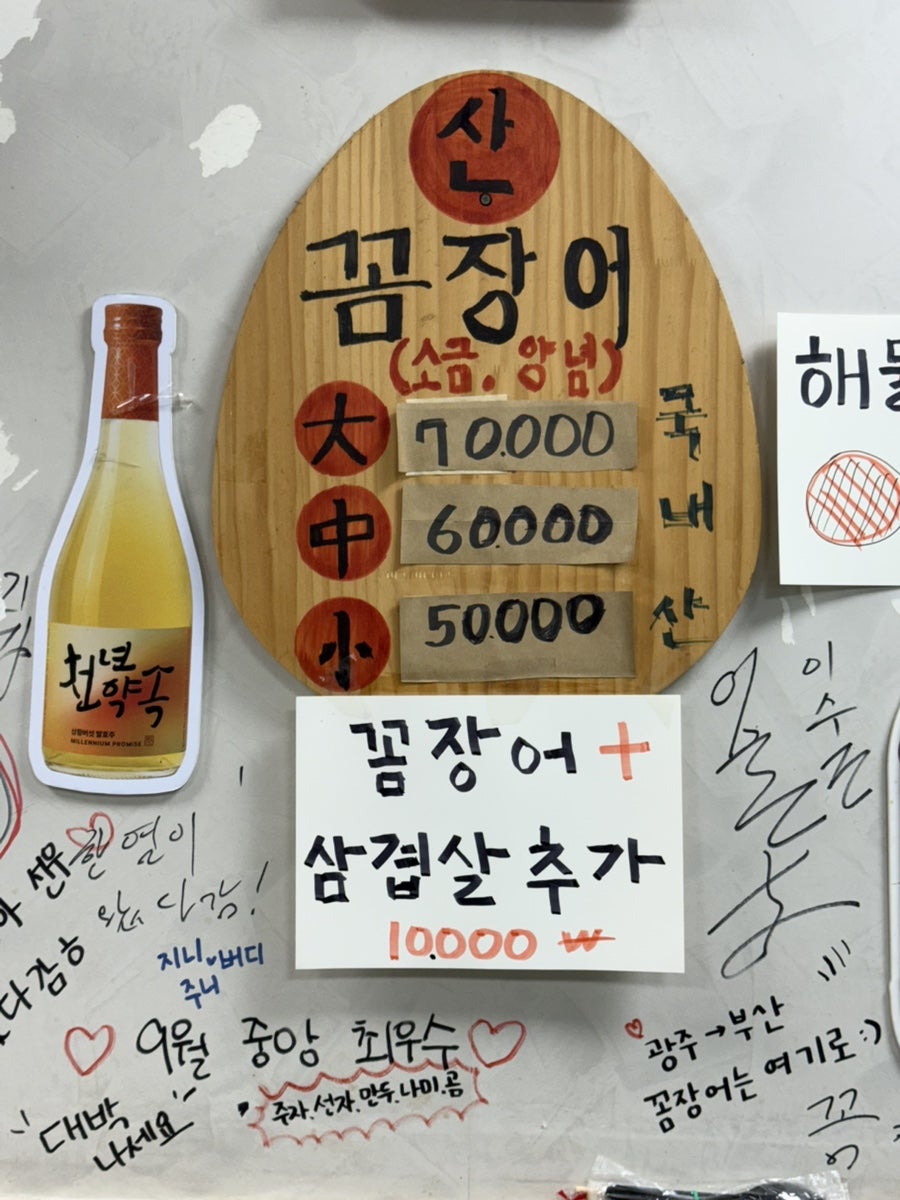 산
꼼장어
(소금. 양념)
大 70.000
中 60.000
小 50.000
국내산
꼼장어 +
삼겹살 추가
10.000 ₩
해물
천년
약속
상황버섯 발효주
MILLENNIUM PROMISE
선유
왔다감!
다감ㅎ
지니♥버디
주니
♡ 9월 중앙 최우수 ♡
주자.선자.만두.나미.곰
대박
나세요
♡ 광주→부산
꼼장어는 여기로:)